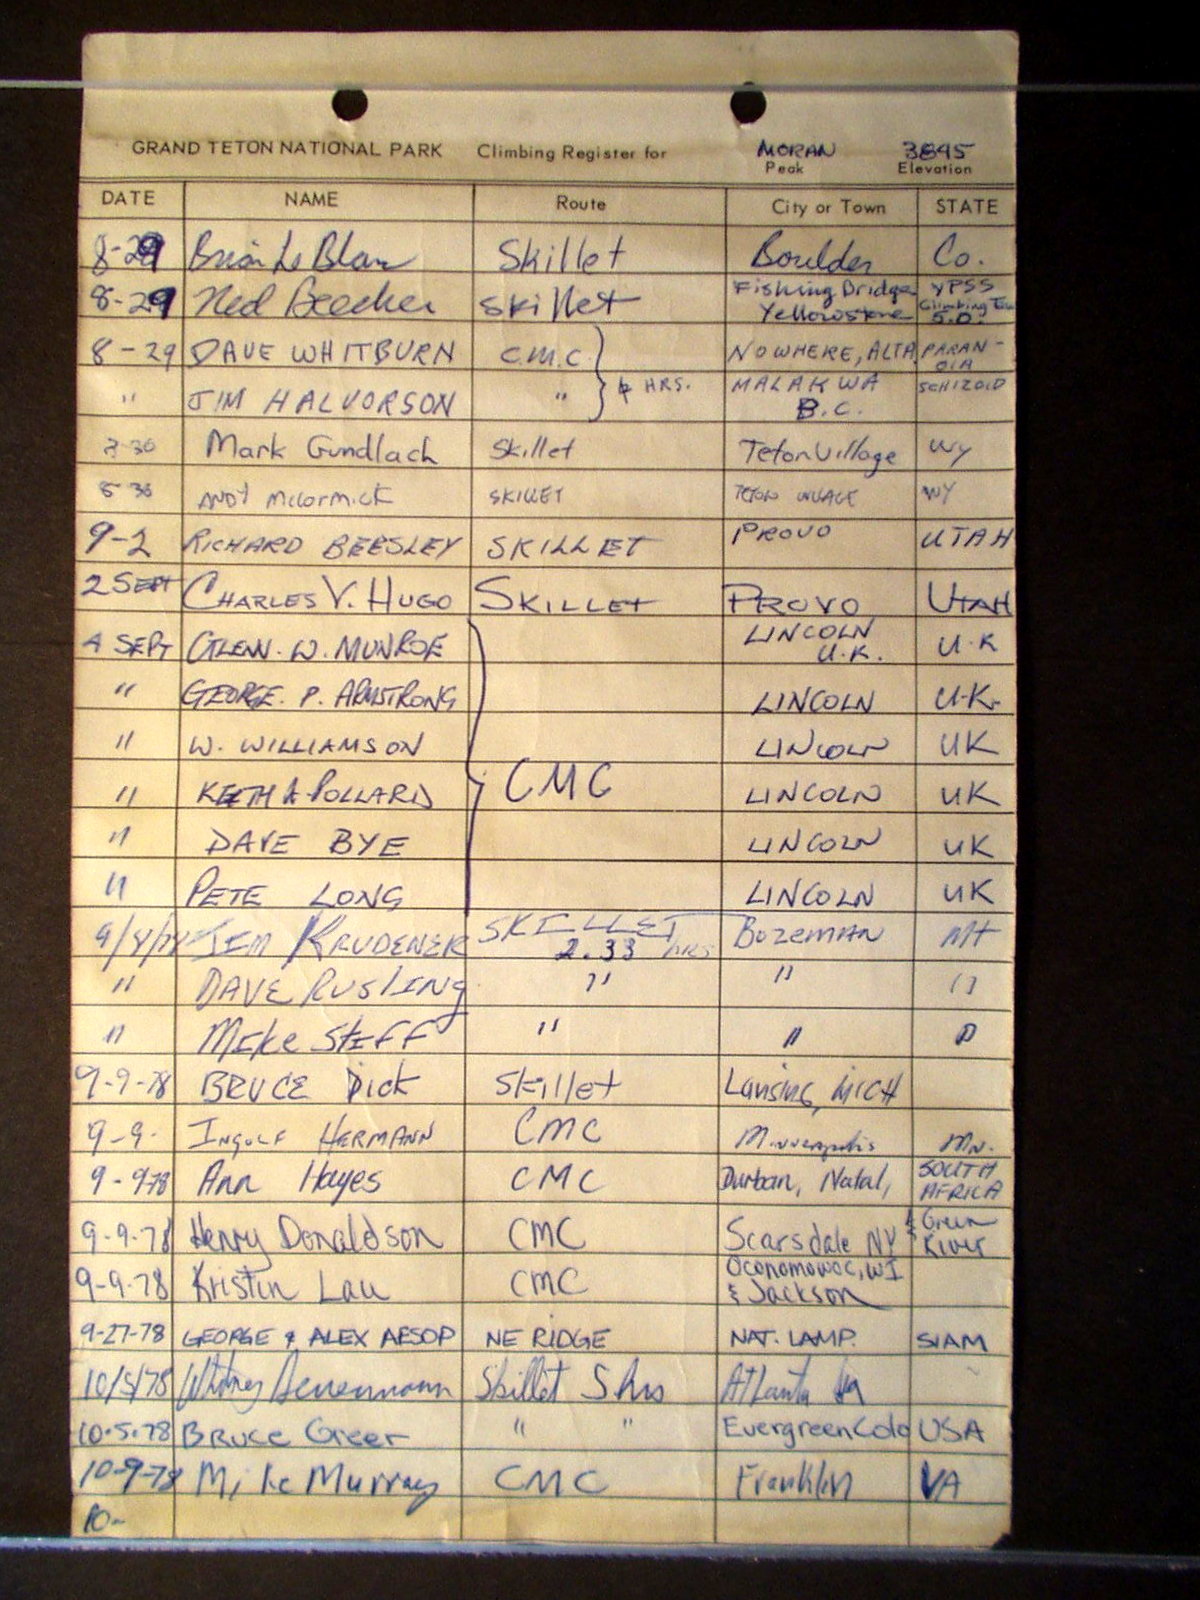 GRAND TETON NATIONAL PARK Climbing Register for MORAN 3845
Peak Elevation
DATE NAME Route City or Town STATE
8-29 Brian Le Blanc Skillet Boulder Co.
8-29 Ned Beecher Skillet Fishing Bridge Yellowstone YPSS Climbing S.D.
8-29 DAVE WHITBURN C.M.C. NOWHERE, ALTA PARAN-OIA
" JIM HALVORSON " 4 HRS. MALAKWA B.C. SCHIZOID
8-30 Mark Gundlach Skillet Teton Village Wy
8-30 ANDY McCormick SKILLET TETON VILLAGE WY
9-2 RICHARD BEESLEY SKILLET PROVO UTAH
2 SEPT CHARLES V. HUGO SKILLET PROVO UTAH
4 SEPT GLENN. W. MUNROE LINCOLN U.K. U.K
" GEORGE. P. ARMSTRONG LINCOLN U.K.
" W. WILLIAMSON LINCOLN UK
" KEITH A POLLARD CMC LINCOLN UK
" DAVE BYE LINCOLN UK
" PETE LONG LINCOLN UK
9/8/78 JIM KRUDENER SKILLET 2.33 HRS Bozeman MT
" DAVE RUSLING " " "
" Mike Steff " " "
9-9-78 BRUCE Dick Skillet Lansing, MICH
9-9- INGOLF HERMANN CMC Minneapolis MN.
9-978 Ann Hayes CMC Durban, Natal, SOUTH AFRICA
9-9-78 Henry Donaldson CMC Scarsdale NY & Green River
9-9-78 Kristin Lau CMC Oconomowoc, WI & Jackson
9-27-78 GEORGE & ALEX AESOP NE RIDGE NAT. LAMP. SIAM
10/5/78 Whitney Skillet 5 hrs Atlanta Ga
10.5.78 Bruce Greer " " Evergreen Colo USA
10-9-78 Mike Murray CMC Franklin VA
10-